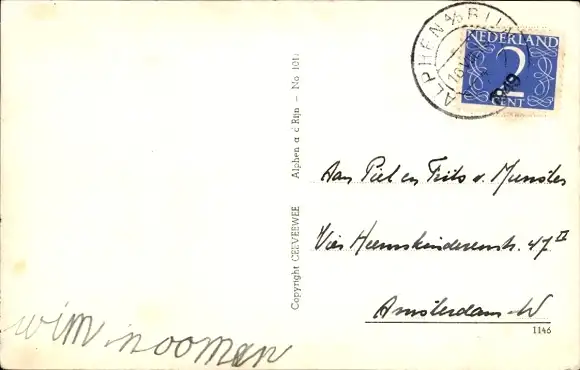 ALPHEN A/D RIJN
NEDERLAND
2
CENT
1949
Alphen a d Rijn – No 101
Copyright CEEVEEWEE
Aan Piet en Frits v. Munster
Vier Heemskinderenstr. 47 II
Amsterdam-W
1146
wim noomen